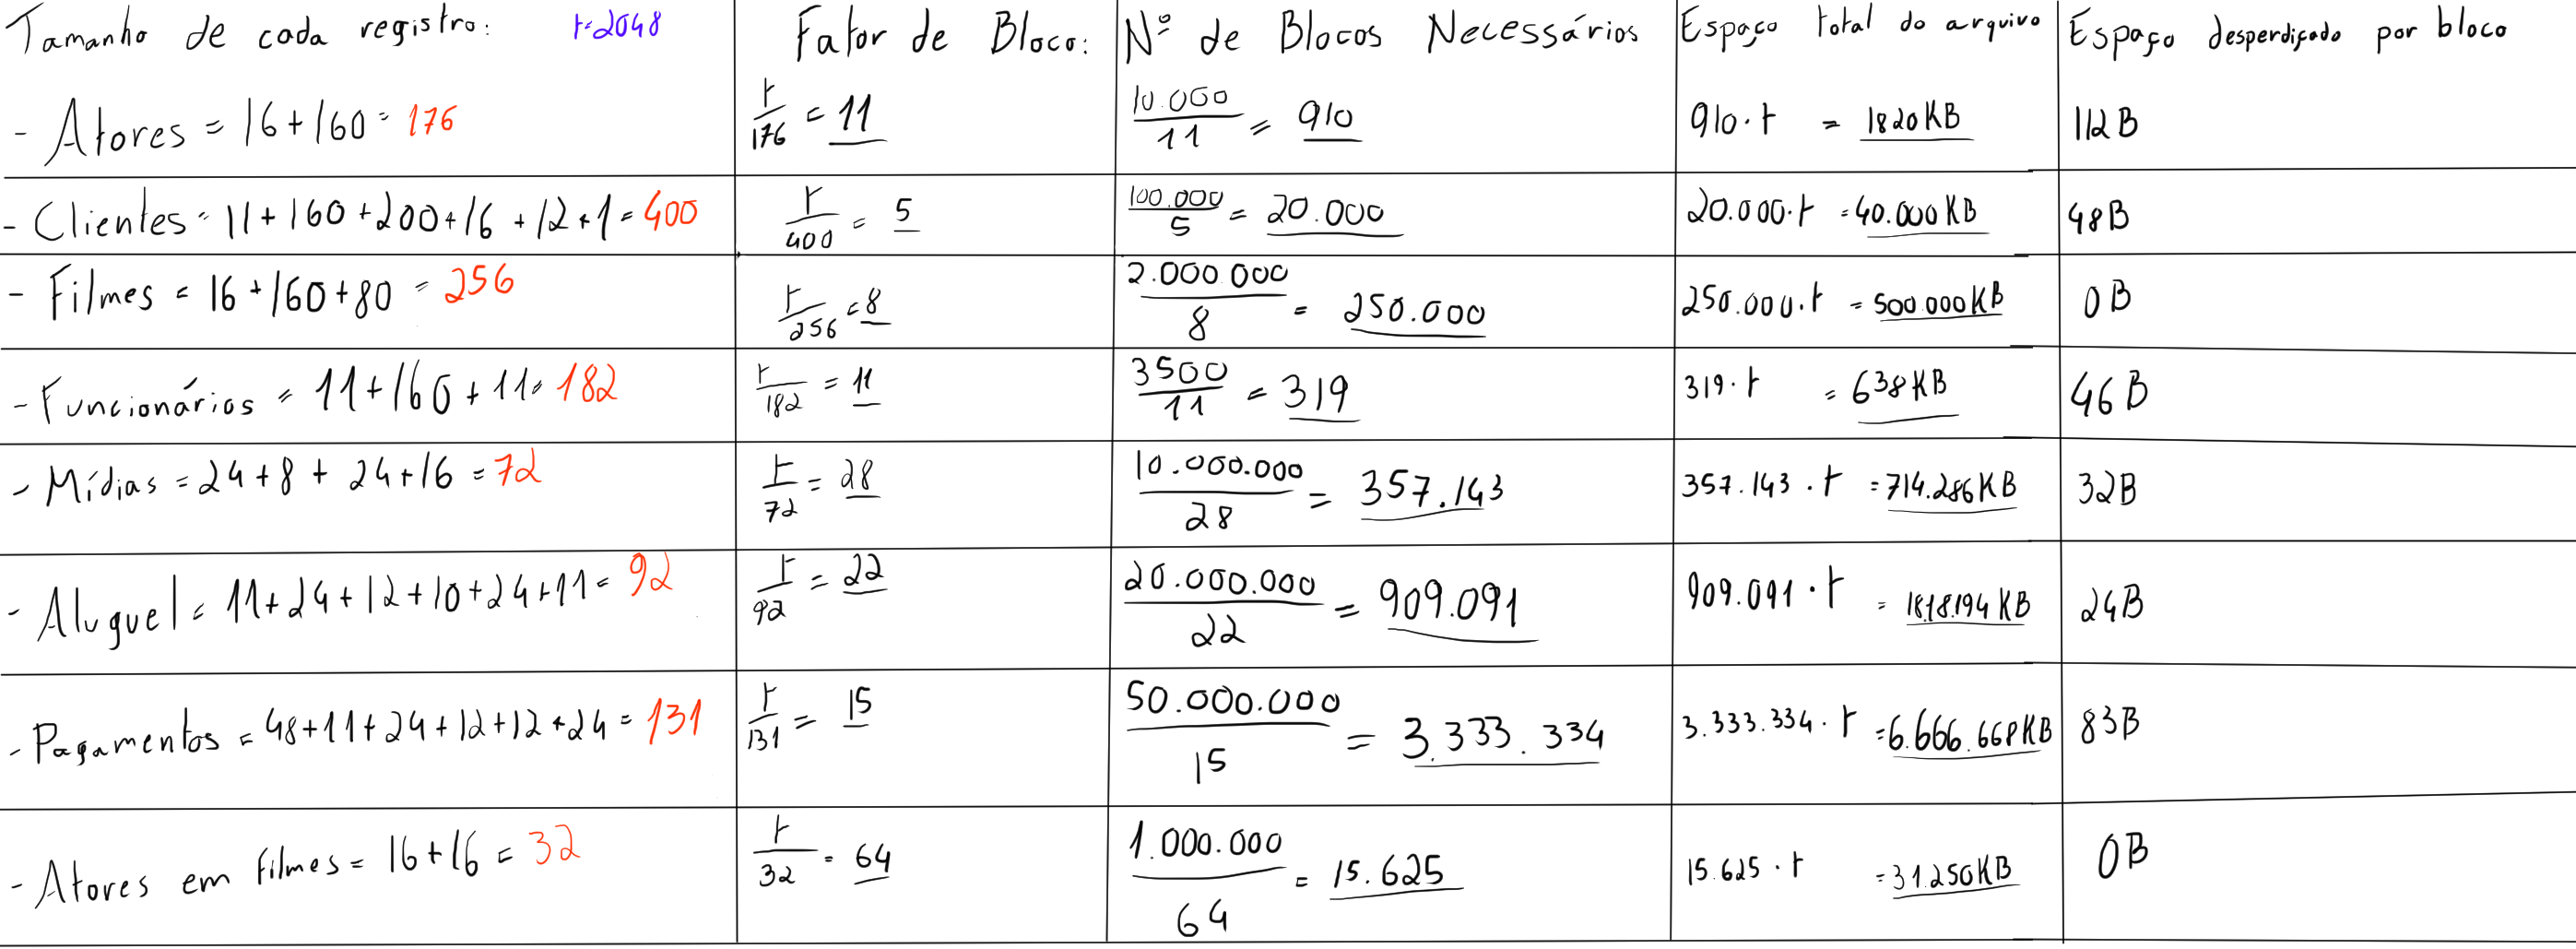 Tamanho de cada registro: r=2048
Fator de Bloco:
Nº de Blocos Necessários
Espaço total do arquivo
Espaço desperdiçado por bloco
- Atores = 16+160 = 176
r/176 = 11
10.000/11 = 910
910·r = 1820KB
112B
- Clientes = 11+160+200+16+12+1 = 400
r/400 = 5
100.000/5 = 20.000
20.000·r = 40.000KB
48B
- Filmes = 16+160+80 = 256
r/256 = 8
2.000.000/8 = 250.000
250.000·r = 500.000KB
0B
- Funcionários = 11+160+11 = 182
r/182 = 11
3500/11 = 319
319·r = 638KB
46B
- Mídias = 24+8+24+16 = 72
r/72 = 28
10.000.000/28 = 357.143
357.143·r = 714.286KB
32B
- Aluguel = 11+24+12+10+24+11 = 92
r/92 = 22
20.000.000/22 = 909.091
909.091·r = 1818.194KB
24B
- Pagamentos = 48+11+24+12+12+24 = 131
r/131 = 15
50.000.000/15 = 3.333.334
3.333.334·r = 6.666.668KB
83B
- Atores em filmes = 16+16 = 32
r/32 = 64
1.000.000/64 = 15.625
15.625·r = 31.250KB
0B